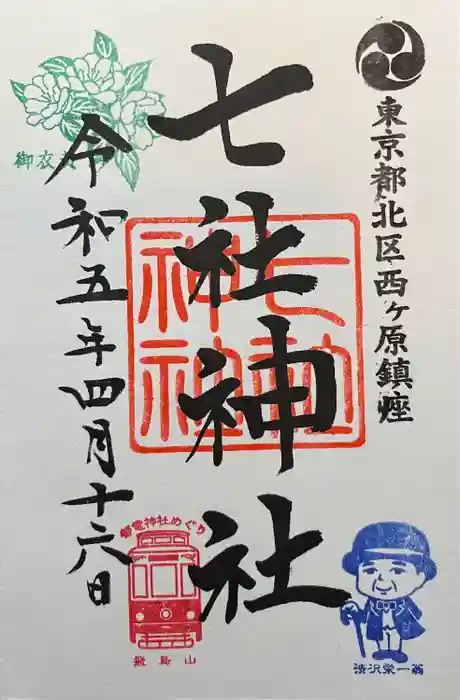 東京都北区西ヶ原鎮座
七社神社
七社神社
令和五年四月十六日
御衣
都電神社めぐり
飛鳥山
渋沢栄一翁